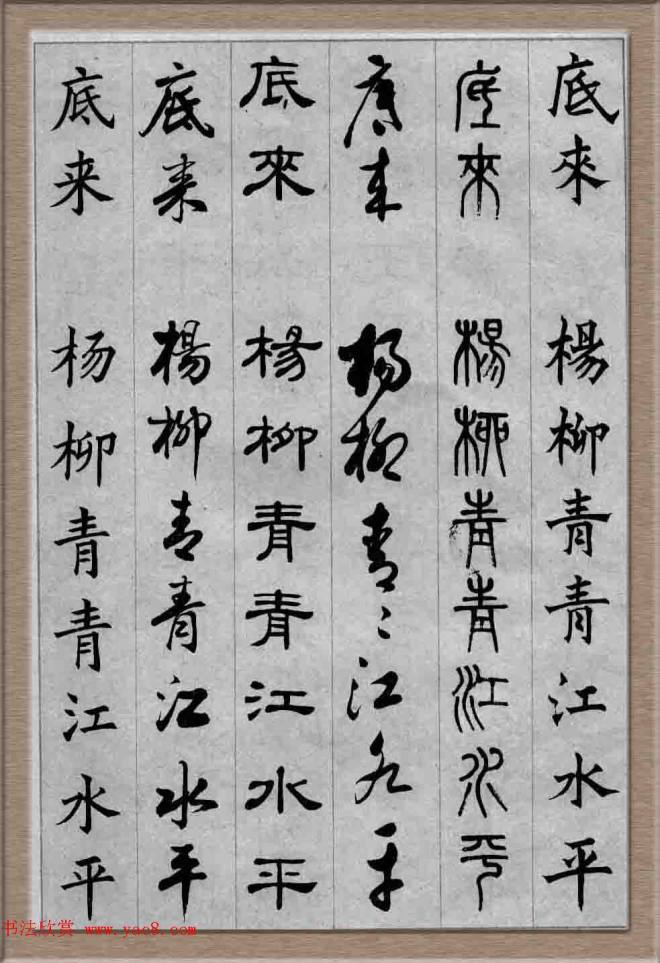 底來 楊柳青青江水平
底來 楊柳青青江水平
底来 楊柳青〻江水平
底來 楊柳青青江水平
底来 楊柳青青江水平
底来 杨柳青青江水平
书法欣赏 www.yac8.com